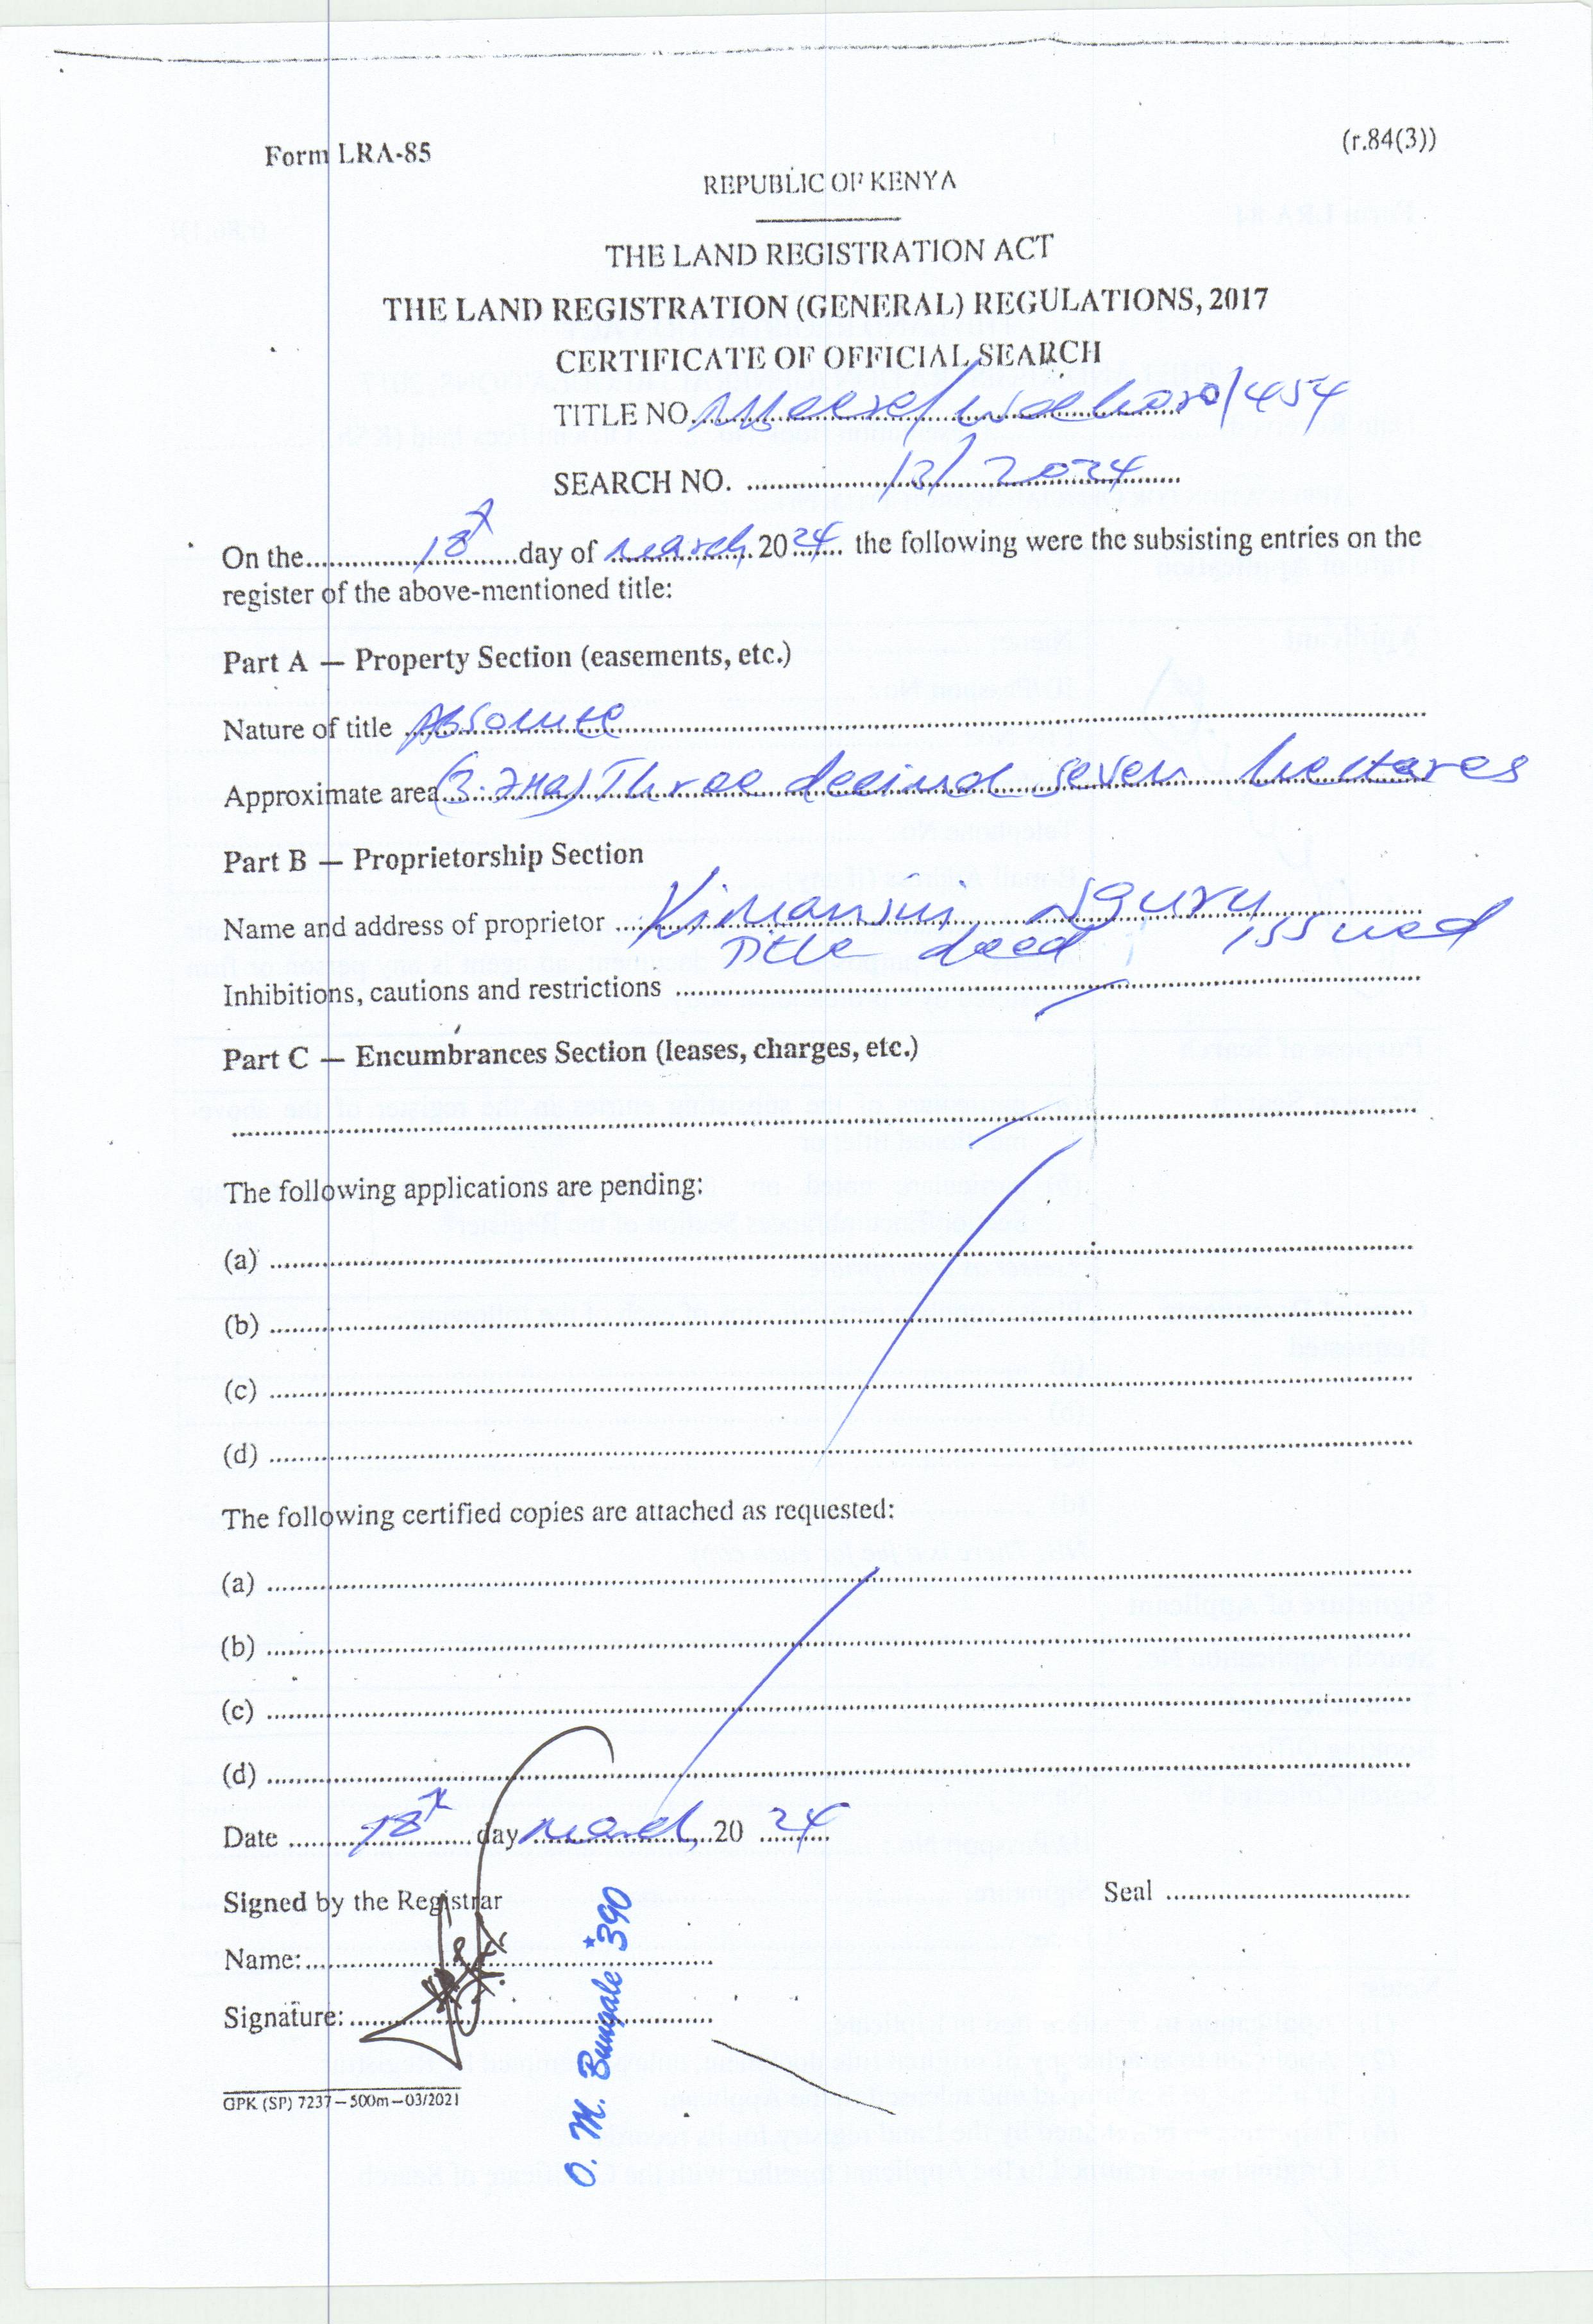 Form LRA-85
(r.84(3))
REPUBLIC OF KENYA
THE LAND REGISTRATION ACT
THE LAND REGISTRATION (GENERAL) REGULATIONS, 2017
CERTIFICATE OF OFFICIAL SEARCH
TITLE NO. /454
SEARCH NO. 13/2024
On the 18th day of March 2024 the following were the subsisting entries on the
register of the above-mentioned title:
Part A — Property Section (easements, etc.)
Nature of title Absolute
Approximate area (3.7Ha) Three decimal seven hectares
Part B — Proprietorship Section
Name and address of proprietor Nguru
Title deed issued
Inhibitions, cautions and restrictions
Part C — Encumbrances Section (leases, charges, etc.)
The following applications are pending:
(a)
(b)
(c)
(d)
The following certified copies are attached as requested:
(a)
(b)
(c)
(d)
Date 18th day March, 20 24
Signed by the Registrar
Seal
Name:
Signature:
O. M. Bungale *390
GPK (SP) 7237—500m—03/2021